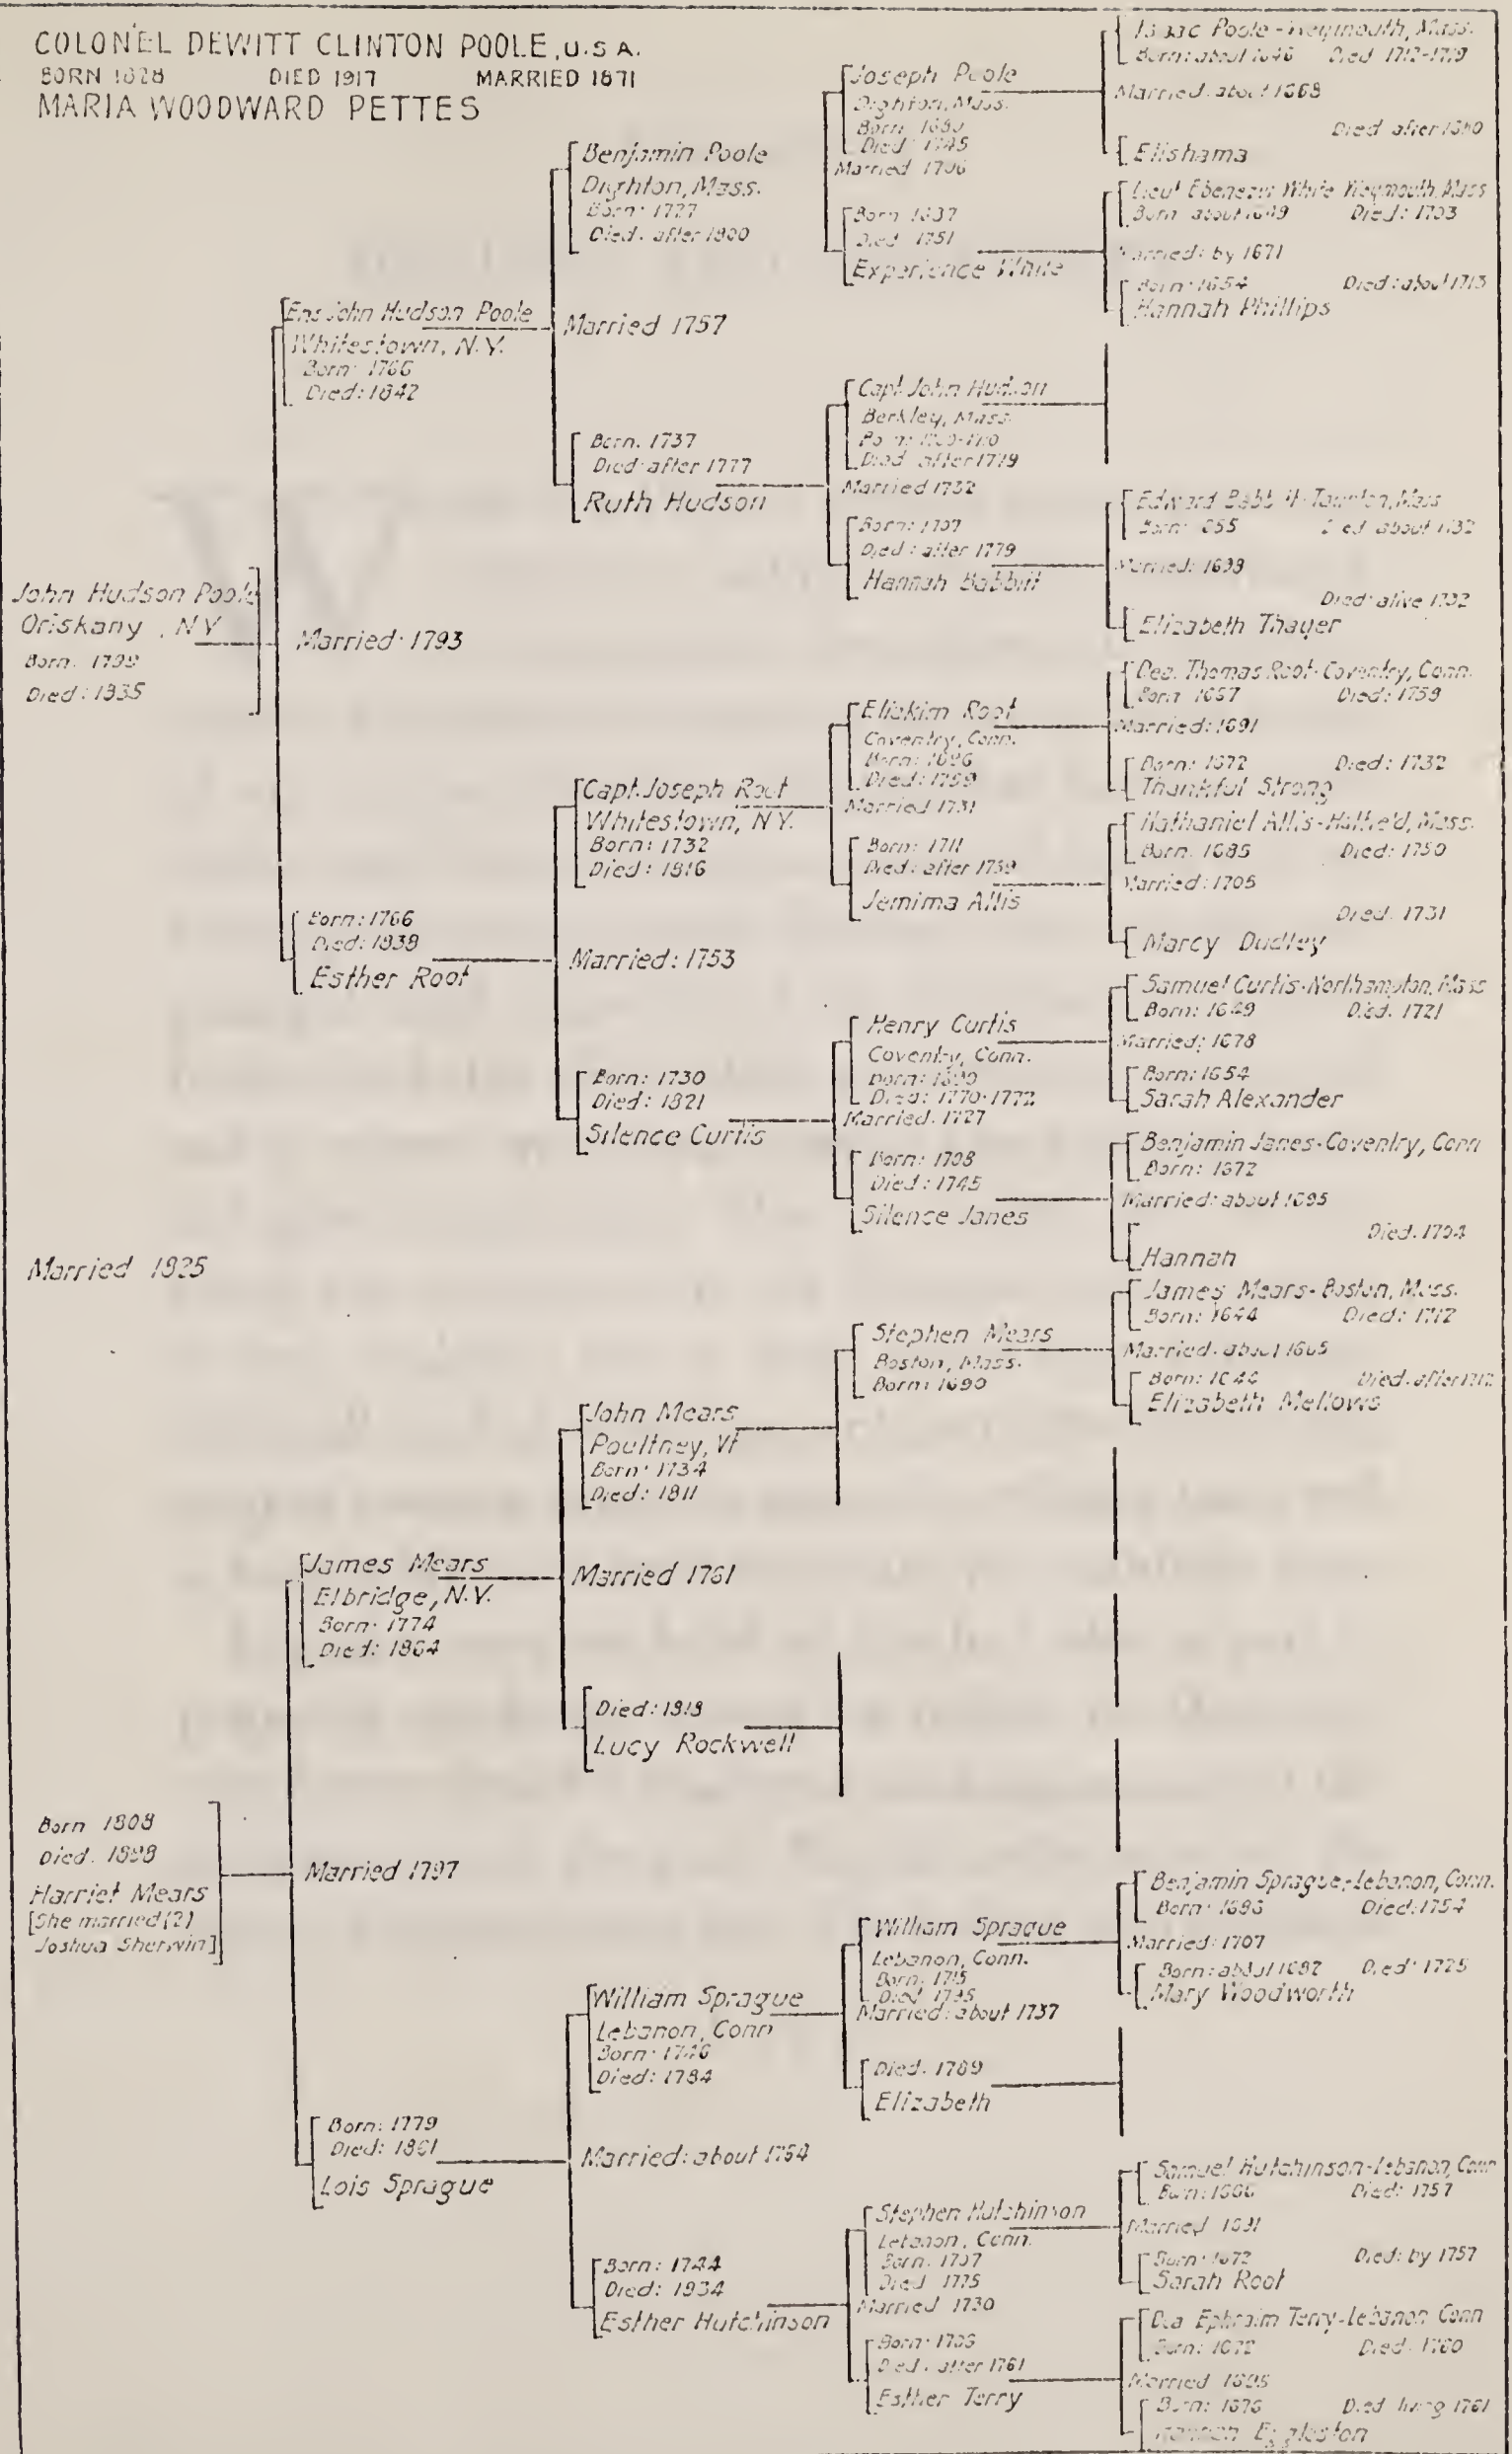 COLONEL DEWITT CLINTON POOLE, U.S.A.
BORN 1828 DIED 1917 MARRIED 1871
MARIA WOODWARD PETTES
John Hudson Poole
Oriskany, N.Y.
Born. 1799
Died: 1835
Married 1825
Born 1808
Died. 1898
Harriet Mears
[She married (2)
Joshua Sherwin]
Ens. John Hudson Poole
Whitestown, N.Y.
Born: 1766
Died: 1842
Married: 1793
Born: 1766
Died: 1838
Esther Root
James Mears
Elbridge, N.Y.
Born: 1774
Died: 1864
Married 1797
Born: 1779
Died: 1861
Lois Sprague
Benjamin Poole
Dighton, Mass.
Born: 1727
Died. after 1800
Married 1757
Born. 1737
Died: after 1777
Ruth Hudson
Capt. Joseph Root
Whitestown, N.Y.
Born: 1732
Died: 1816
Married: 1753
Born: 1730
Died: 1821
Silence Curtis
John Mears
Poultney, Vt
Born: 1734
Died: 1811
Married 1761
Died: 1818
Lucy Rockwell
William Sprague
Lebanon, Conn
Born: 1746
Died: 1784
Married: about 1764
Born: 1744
Died: 1834
Esther Hutchinson
Joseph Poole
Dighton, Mass.
Born:
Died: 1745
Married 1706
Born
Died 1751
Experience White
Capt. John Hudson
Berkley, Mass.
Died after 1779
Married 1732
Born: 1707
Died: after 1779
Hannah Babbitt
Eliakim Root
Coventry, Conn.
Born: 1696
Died: 1759
Married 1731
Born: 1711
Died: after 1759
Jemima Allis
Henry Curtis
Coventry, Conn.
Born: 1690
Died: 1770-1772
Married. 1727
Born: 1708
Died: 1745
Silence Janes
Stephen Mears
Boston, Mass.
Born: 1690
William Sprague
Lebanon, Conn.
Born. 1715
Died 1795
Married: about 1737
Died. 1789
Elizabeth
Stephen Hutchinson
Lebanon, Conn.
Born. 1707
Died 1775
Married 1730
Born:
Died. after 1761
Esther Terry
Isaac Poole - Weymouth, Mass.
Born: about 1646 Died 1712-1719
Married. about 1668
Died after
Elishama
Lieut Ebenezer White Weymouth, Mass
Born about 1649 Died: 1703
Married: by 1671
Born: 1654 Died: about 1713
Hannah Phillips
Edward Babbitt-Taunton, Mass
Born: 1655 Died about 1732
Married: 1698
Died: alive 1732
Elizabeth Thayer
Dea. Thomas Root-Coventry, Conn.
Born 1667 Died: 1758
Married: 1691
Born: 1672 Died: 1732
Thankful Strong
Nathaniel Allis-Hatfield, Mass.
Born. 1685 Died: 1750
Married: 1705
Died. 1731
Marcy Dudley
Samuel Curtis-Northampton, Mass
Born: 1649 Died. 1721
Married; 1678
Born: 1654
Sarah Alexander
Benjamin Janes-Coventry, Conn
Born: 1672
Married: about 1695
Died. 1704
Hannah
James Mears-Boston, Mass.
Born: 1644 Died: 1712
Married. about 1665
Born: 1644 Died. after 1712
Elizabeth Mellows
Benjamin Sprague,-Lebanon, Conn.
Born: 1686 Died: 1754
Married: 1707
Born: about 1682 Died: 1725
Mary Woodworth
Samuel Hutchinson-Lebanon, Conn
Born: 1666 Died: 1757
Married 1691
Born: 1672 Died: by 1757
Sarah Root
Dea Ephraim Terry-Lebanon Conn
Born: 1672 Died. 1760
Married 1695
Born: 1676 Died living 1761
Hannah Eggleston